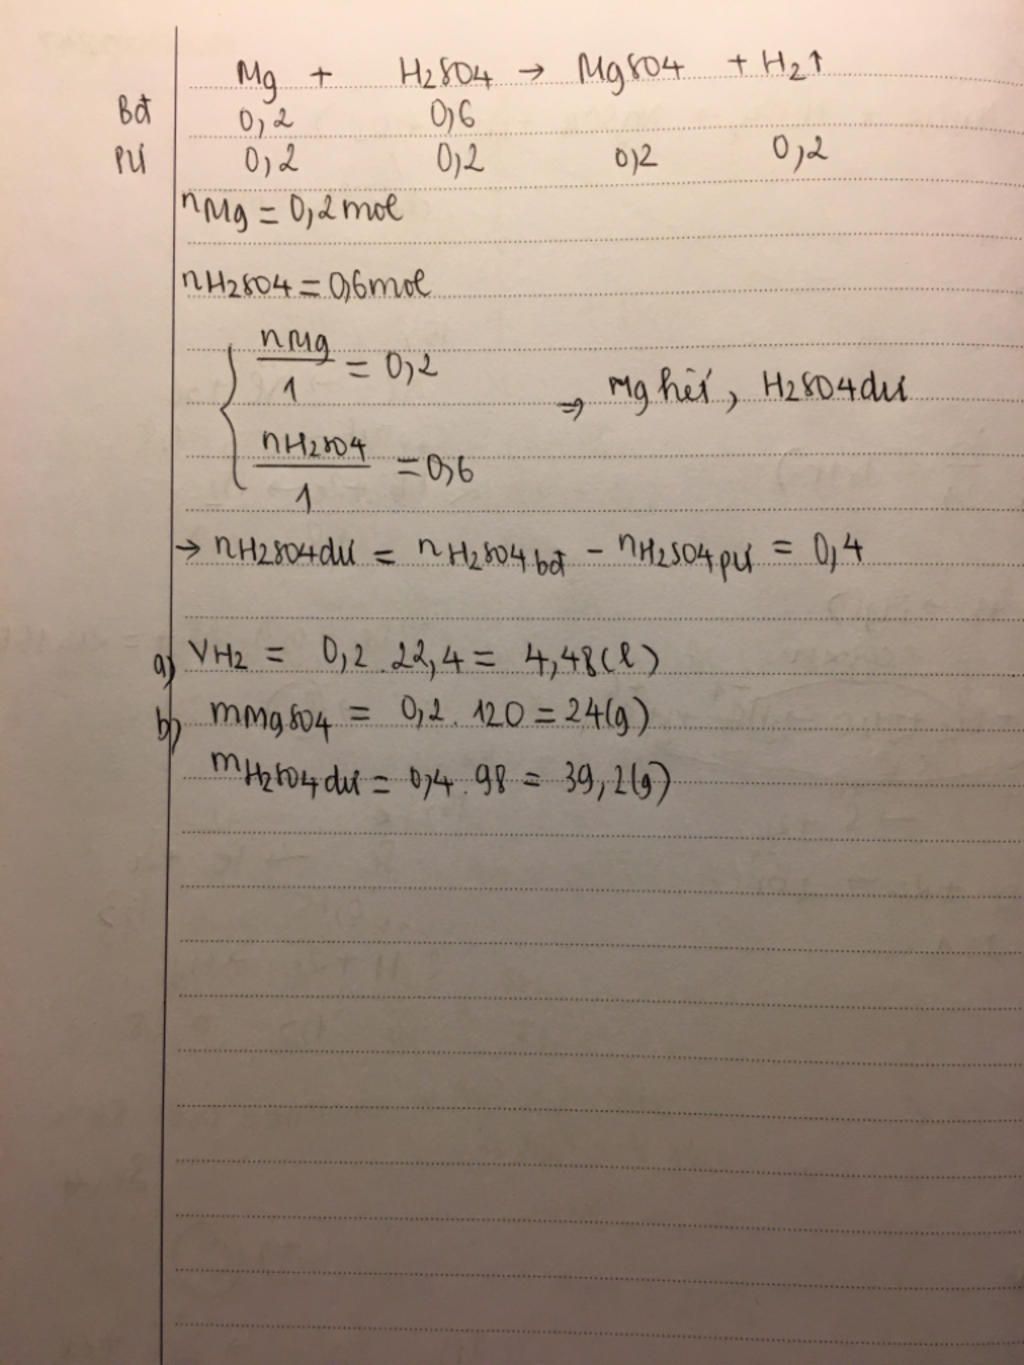 Mg + H2SO4 → MgSO4 + H2↑
Bđ 0,2 0,6
PƯ 0,2 0,2 0,2 0,2
nMg = 0,2 mol
nH2SO4 = 0,6 mol
nMg/1 = 0,2
⇒ Mg hết, H2SO4 dư
nH2SO4/1 = 0,6
→ nH2SO4 dư = nH2SO4 bđ - nH2SO4 pư = 0,4
a) VH2 = 0,2 . 22,4 = 4,48 (l)
b) mMgSO4 = 0,2 . 120 = 24 (g)
mH2SO4 dư = 0,4 . 98 = 39,2 (g)